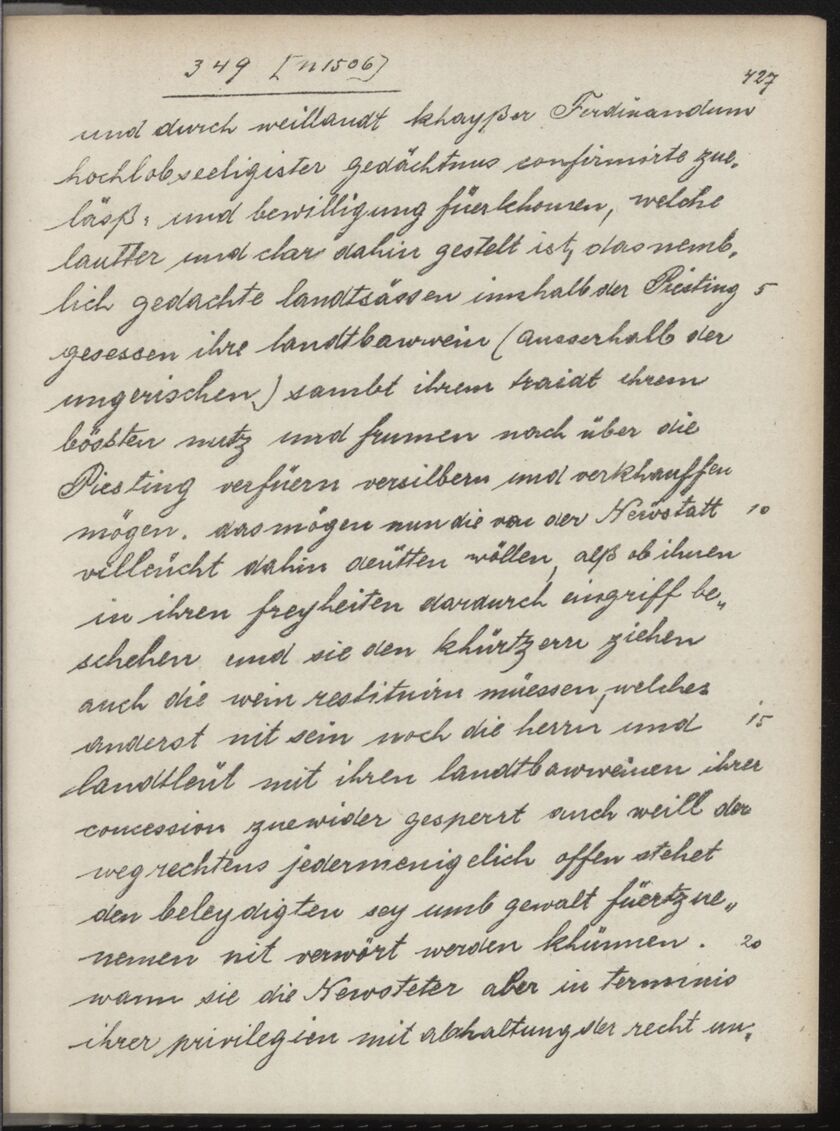 349 [n 1506] 427
und durch weillandt khayßer Ferdinandum
hochlobseeligister gedächtnus confirmirte zue„
läsß: und bewilligung füerkhomen, welche
lautter und clar dahin gestelt ist, das nemb„
lich gedachte landtsässen innhalb der Piesting 5
gesessen ihre landtbawwein (ausserhalb der
ungerischen) sambt ihrem traidt ihrem
bössten nutz und frumen nach über die
Piesting verfüern versilbern und verkhauffen
mögen. das mögen nun die von der Newstatt 10
villeücht dahin deütten wöllen, alß ob ihnen
in ihren freyheiten dardurch eingriff be„
schehen und sie den khürtzern ziehen
auch die wein restituirn müessen, welches
anderst nit sein noch die herrn und 15
landtleüt mit ihren landtbawweinen ihrer
concession zuewider gesperrt auch weill der
weg rechtens jedermenigelich offen stehet
den beleydigten sey umb gewalt füertzue„
nemen nit verwört werden khünnen. 20
wann sie die Newsteter aber in terminis
ihrer privilegien mit abhaltung der recht un„